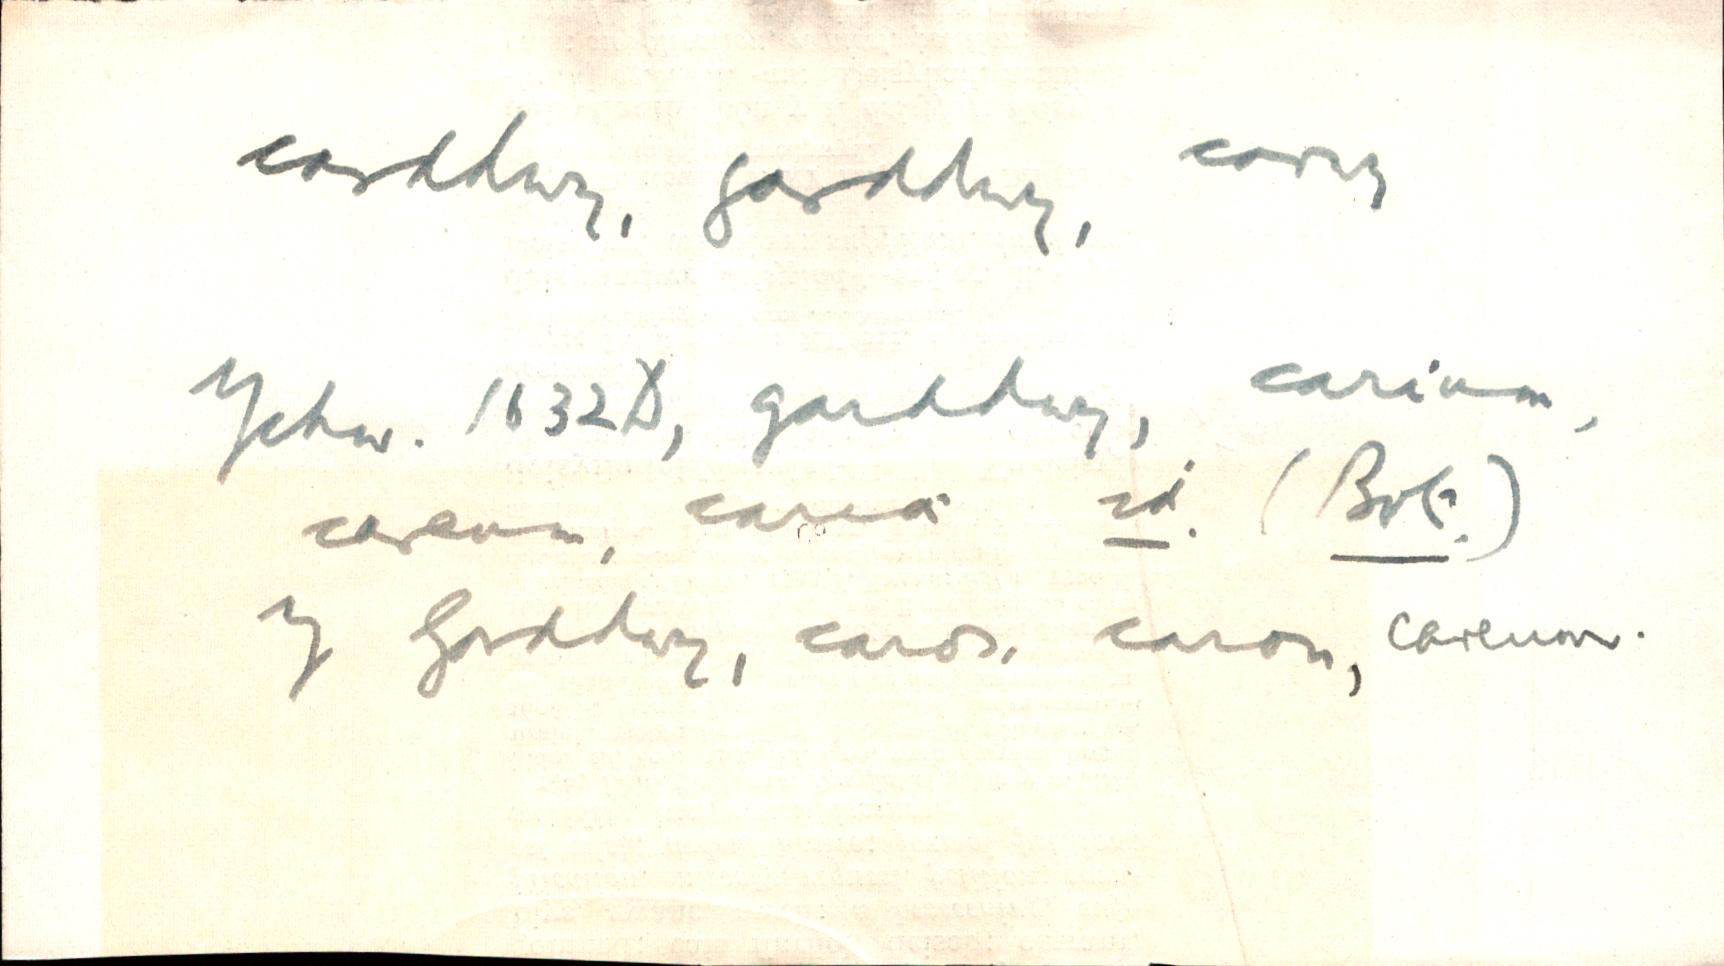 carddwy, garddwy, carwy
Ychw. 1632D, garddwy, carium,
careum, carea id. (Bot.)
Y Garddwy, caros. caron, careum.